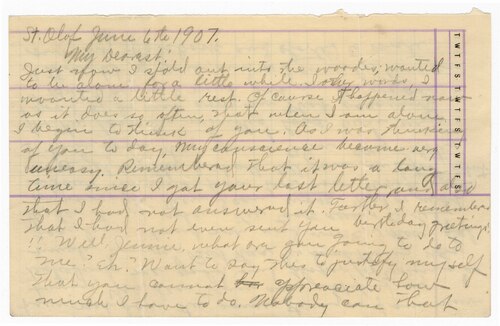 St. Olaf June 6th 1907.
My Dearest!
Just now I stold out into the woods, wanted
to be alone for a little while. In other words, I
wanted a little rest. Of course it happened now
as it does so often, that when I am alone
I begun to think of you. As I was thinking
of you to day, my conscience became very
uneasy. Remembered that it was a long
time since I got your last letter and also
that I had not answered it. Further I remembered
that I had not even sent you birthday greetings
!! Well Jennie, what are you going to do to
me? eh? Want to say this to justify myself
that you cannot appreaciate how
much I have to do. Nobody can that
T W T F S T W T F S T W T F S